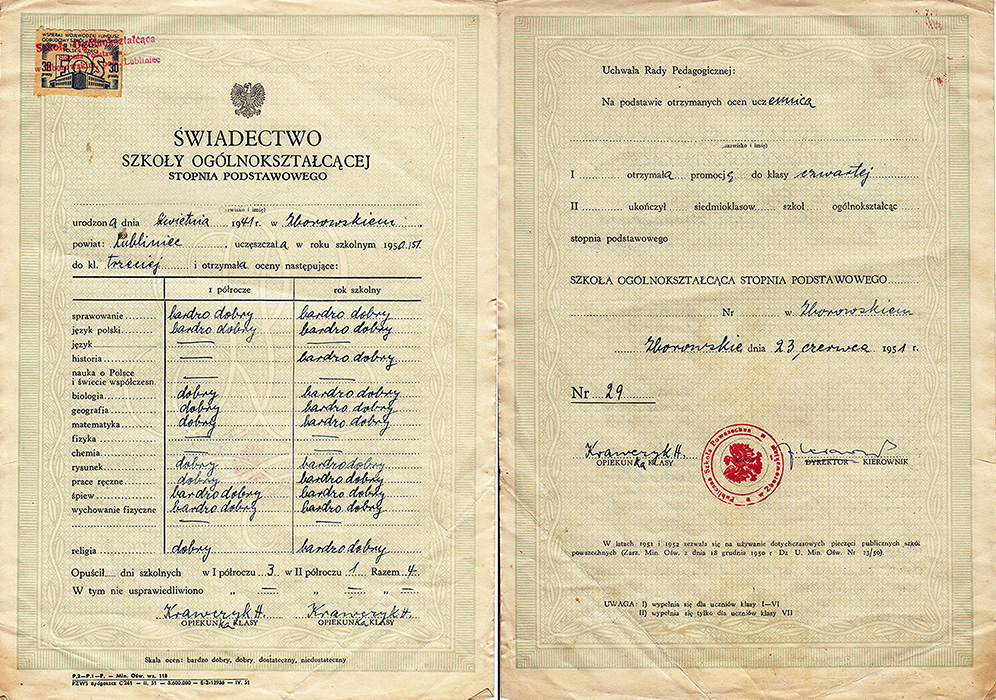 WSPIERAJ WOJEWÓDZKI FUNDUSZ
ODBUDOWY SZKÓŁ
POLSKIE DZIECI
Szkoła Ogólnokształcąca
Lubliniec
30 FOS 30
ŚWIADECTWO
SZKOŁY OGÓLNOKSZTAŁCĄCEJ
STOPNIA PODSTAWOWEGO
(nazwisko i imię)
urodzona dnia kwietnia 1941 r. w Zborowskiem,
powiat: Lubliniec, uczęszczała w roku szkolnym 1950/51
do kl. trzeciej i otrzymała oceny następujące:
I półrocze rok szkolny
sprawowanie bardzo dobry bardzo dobry
język polski bardzo dobry bardzo dobry
język —
historia — bardzo dobry
nauka o Polsce
i świecie współczesn. — —
biologia dobry bardzo dobry
geografia dobry bardzo dobry
matematyka dobry bardzo dobry
fizyka — —
chemia —
rysunek dobry bardzo dobry
prace ręczne dobry bardzo dobry
śpiew bardzo dobry bardzo dobry
wychowanie fizyczne bardzo dobry bardzo dobry
— —
religia dobry bardzo dobry
Opuścił dni szkolnych w I półroczu 3 w II półroczu 1 Razem 4
W tym nie usprawiedliwiono „ — „ — „ —
Krawczyk H. Krawczyk H.
OPIEKUNka KLASY OPIEKUNka KLASY
Skala ocen: bardzo dobry, dobry, dostateczny, niedostateczny
P.2—P.1—P. — Min. Ośw. wz. 118
PZWS Bydgoszcz C 241 — II. 51 — 3.600.000 — E-2-12936 — IV. 51
Uchwała Rady Pedagogicznej:
Na podstawie otrzymanych ocen uczennica
(nazwisko i imię)
I otrzymała promocję do klasy czwartej
II ukończył siedmioklasow szkoł ogólnokształcąc
stopnia podstawowego
SZKOŁA OGÓLNOKSZTAŁCĄCA STOPNIA PODSTAWOWEGO
Nr w Zborowskiem
Zborowskie dnia 23 czerwca 1951 r.
Nr 29
Krawczyk H.
OPIEKUNka KLASY DYREKTOR — KIEROWNIK
Publiczna Szkoła Powszechna
W latach 1951 i 1952 zezwala się na używanie dotychczasowych pieczęci publicznych szkół
powszechnych (Zarz. Min. Ośw. z dnia 18 grudnia 1950 r. Dz. U. Min. Ośw. Nr 23/50).
UWAGA: I) wypełnia się dla uczniów klasy I—VI
II) wypełnia się tylko dla uczniów klasy VII